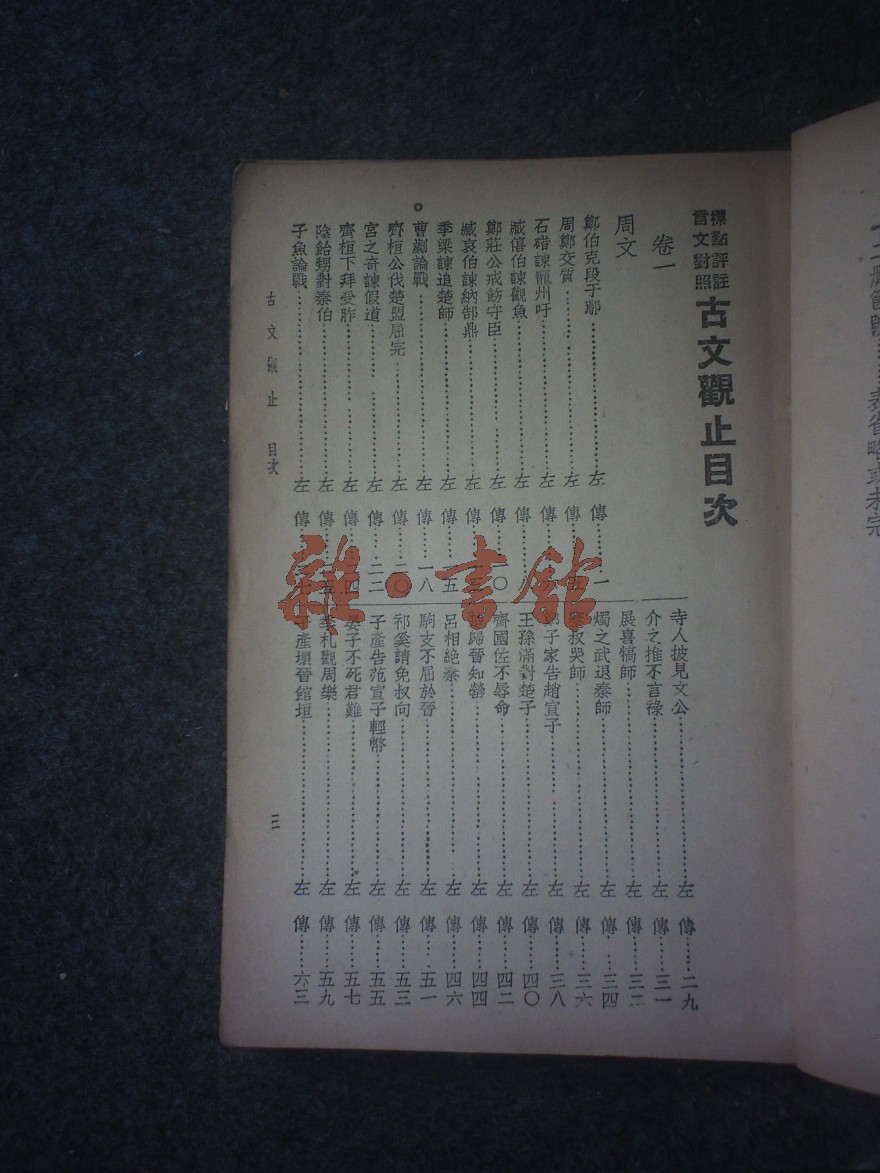 標點評註
言文對照
古文觀止目次
卷一
周文
鄭伯克段于鄢……左傳……一
周鄭交質……左傳……
石碏諫寵州吁……左傳……
臧僖伯諫觀魚……左傳……八
鄭莊公戒飭守臣……左傳……一〇
臧哀伯諫納郜鼎……左傳……
季梁諫追楚師……左傳……五
曹劌論戰……左傳……一八
齊桓公伐楚盟屈完……左傳……二〇
宮之奇諫假道……左傳……二二
齊桓下拜受胙……左傳……四
陰飴甥對秦伯……左傳……
子魚論戰……左傳……
寺人披見文公……左傳……二九
介之推不言祿……左傳……三一
展喜犒師……左傳……三二
燭之武退秦師……左傳……三四
叔哭師……左傳……三六
子家告趙宣子……左傳……三八
王孫滿對楚子……左傳……四〇
齊國佐不辱命……左傳……四二
歸晉知罃……左傳……四四
呂相絕秦……左傳……四六
駒支不屈於晉……左傳……五一
祁奚請免叔向……左傳……五三
子產告范宣子輕幣……左傳……五五
晏子不死君難……左傳……五七
季札觀周樂……左傳……五九
子產壞晉館垣……左傳……六三
古文觀止 目次
三
雜·書館